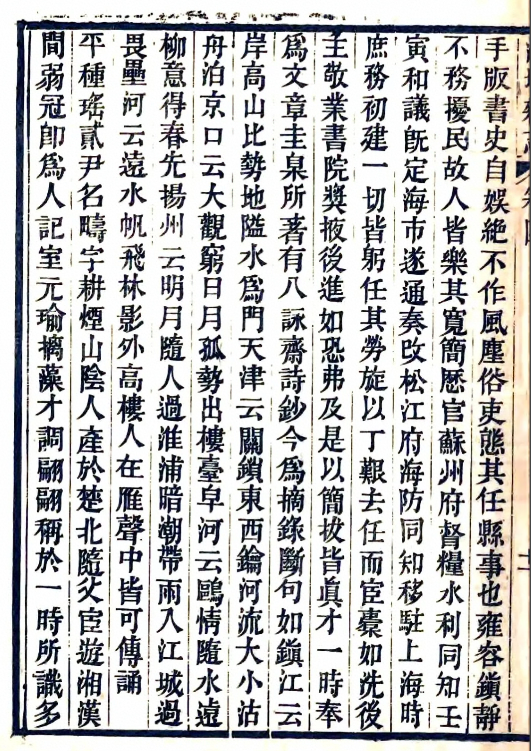 手版書史自娛絶不作風塵俗吏態其任縣事也雍容鎮靜
不務擾民故人皆樂其寬簡歷官蘇州府督糧水利同知壬
寅和議旣定海市遂通奏改松江府海防同知移駐上海時
庶務初建一切皆躬任其勞旋以丁艱去任而宦橐如洗後
主敬業書院奬掖後進如恐弗及是以簡拔皆眞才一時奉
爲文章圭臬所著有八詠齋詩鈔今爲摘錄斷句如鎭江云
岸高山比勢地隘水爲門天津云關鎖東西鑰河流大小沽
舟泊京口云大觀窮日月孤勢出樓臺阜河云鷗情隨水遠
柳意得春先揚州云明月隨人過淮浦暗潮帶雨入江城過
畏壘河云遠水帆飛林影外高樓人在雁聲中皆可傳誦
平種瑤貳尹名疇字耕煙山陰人產於楚北隨父宦遊湘漢
間弱冠卽爲人記室元瑜摛藻才調翩翩稱於一時所識多